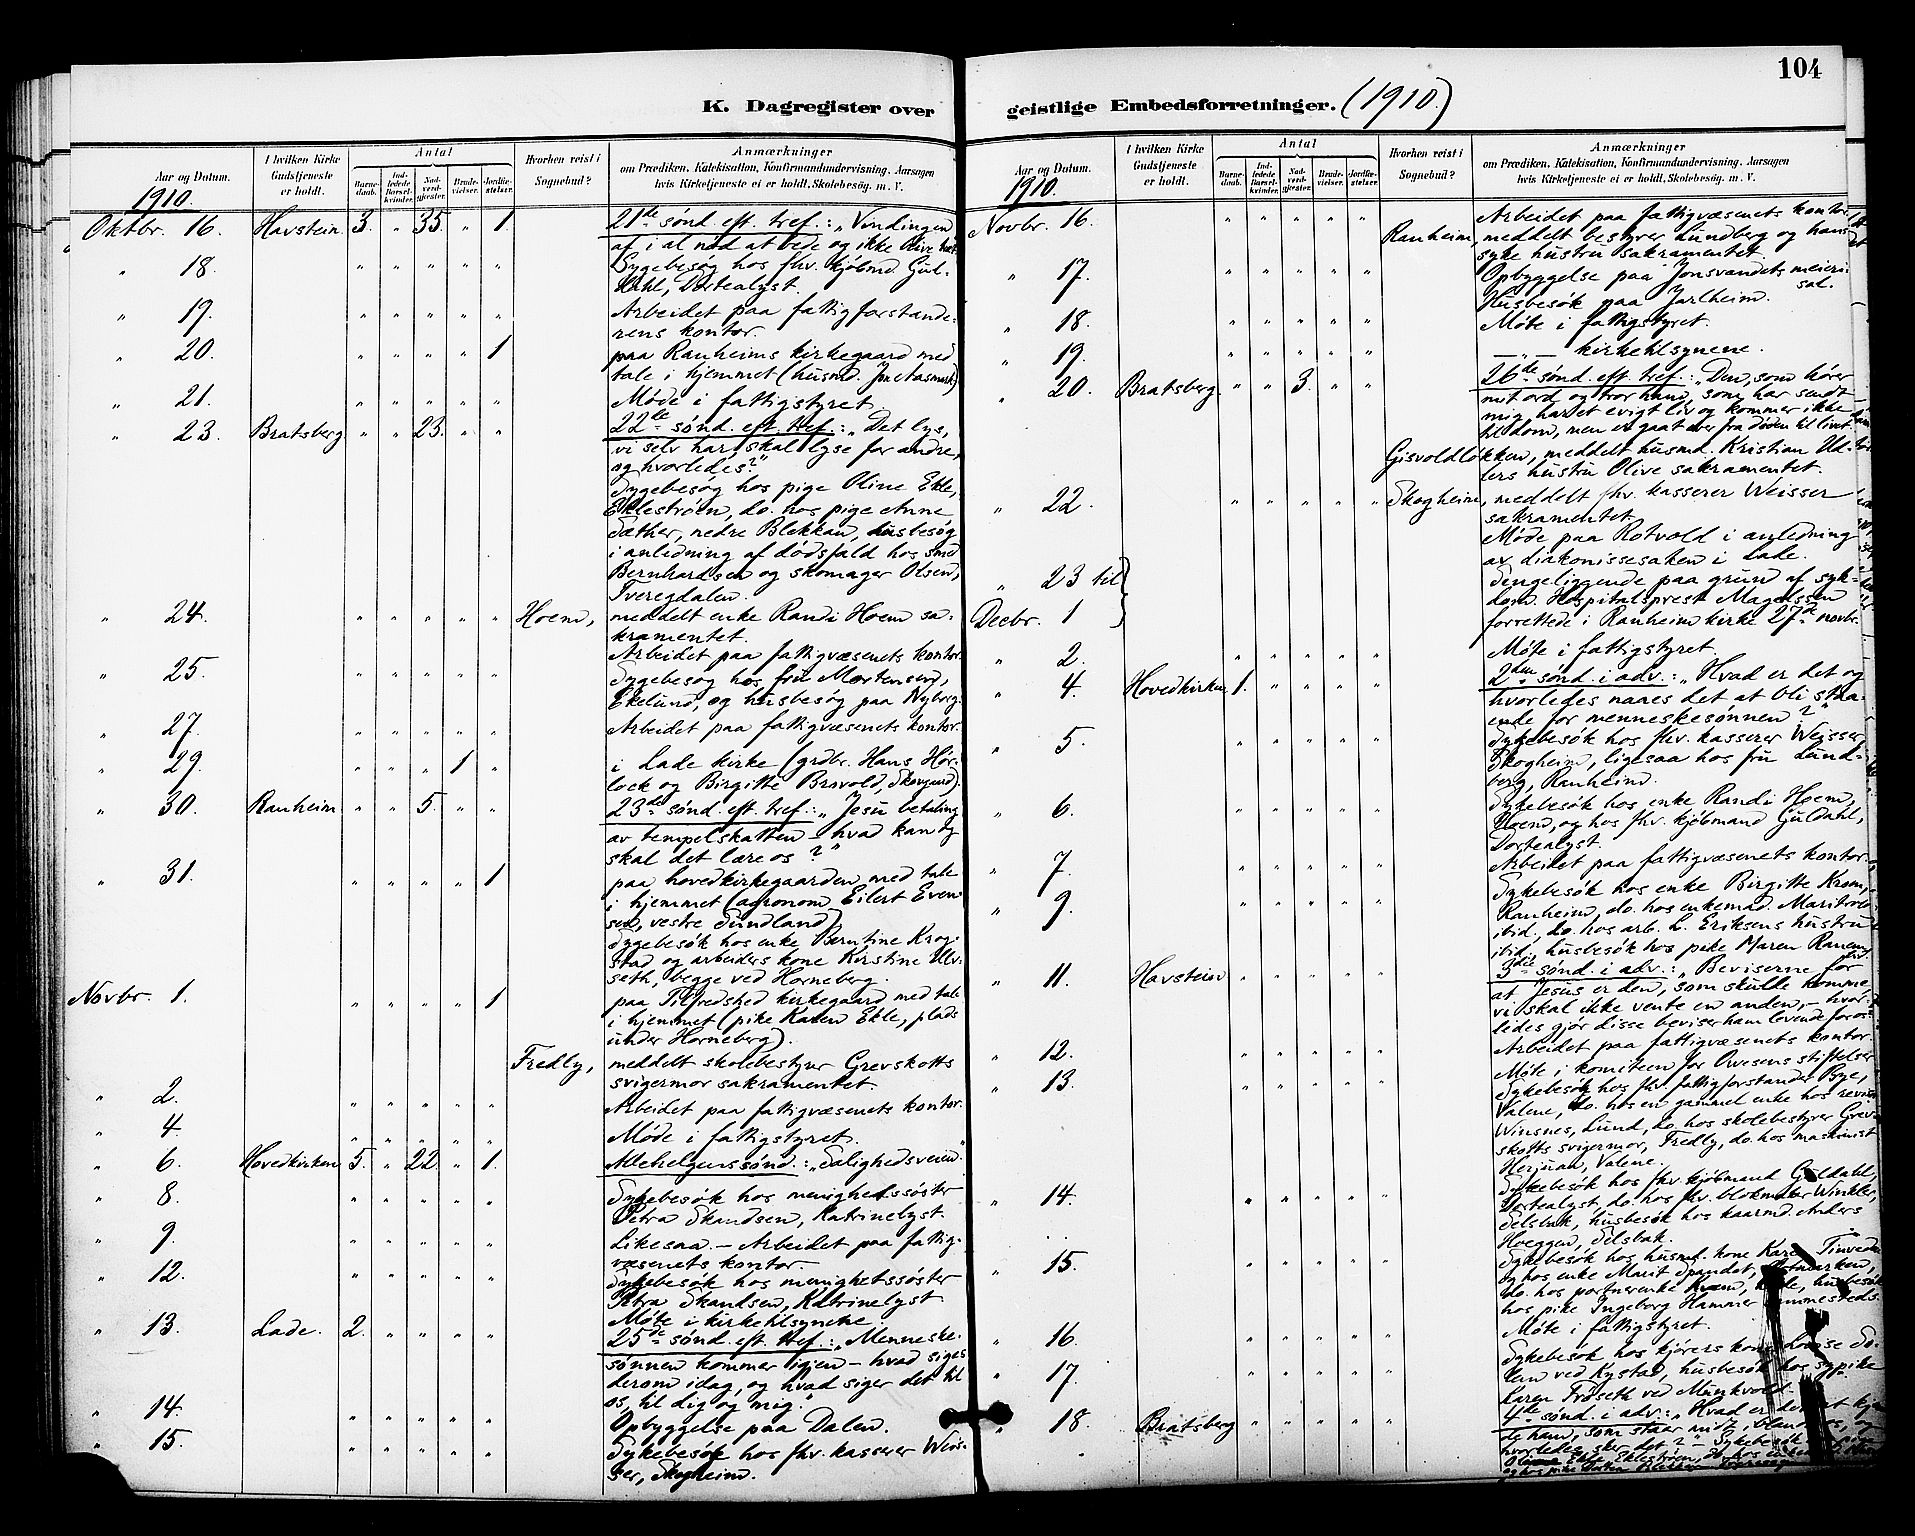 104
K. Dagregister over
geistlige Embedsforretninger. (1910.)
Aar og Datum.
I hvilken Kirke Gudstjeneste er holdt.
Antal
Barnedaab.
Indledede Barselkvinder.
Nadverdgjester.
Brudevielser.
Jordfæstelser.
Hvorhen reist i Sognebud?
Anmærkninger
om Prædiken, Katekisation, Konfirmandundervisning, Aarsagen
hvis Kirketjeneste ei er holdt, Skolebesøg m. V.
1910.
Oktbr. 16. Havstein 3. " 35. " 1. 21de sønd. eft. tref.: „Vindingen
af i al nød at bede og ikke blive træt.
" 18. " " " " " Sygebesøg hos fhv. kjøbmd. Gul-
dahl, Dortealyst.
" 19. " " " " " Arbeidet paa fattigforstande-
rens kontor.
" 20. " " " " 1 paa Ranheims kirkegaard med
tale i hjemmet (husmd.
" 21. " " " " " Møde i fattigstyret.
" 23. Bratsberg " " 23. " " 22de sønd. eft. tref.: „Det lys,
vi selv har, skal lyse for andre,
og hvorledes?"
Sygebesøg hos pige Oline Ekle,
Eklestrøen, do. hos pige Anne
Sæther, nedre Blekkan, husbesøg
i anledning af dødsfald hos smed
Bernhardsen og skomager Olsen,
Tveregdalen.
" 24. " " " " " Hoem, meddelt enke Randi Hoem sa-
kramentet.
Arbeidet paa fattigvæsenets kontor.
" 25. " " " " " Sygebesøg hos fru Mortensen,
Ekelund, og husbesøg paa Nyborg.
" 27. " " " " " Arbeidet paa fattigvæsenets kontor.
" 29. " " " 1 " i Lade kirke (grdbr. Hans Hør-
lock og Birgitte Bravold, Skovgaard).
" 30. Ranheim " " 5. " " 23de sønd. eft. tref.: „Jesu betaling
av tempelskatten – hvad kan og
skal det lære os?"
" 31. " " " " 1 paa hovedkirkegaarden med tale
i hjemmet (agronom Eilert Even-
sen, vestre Sundland)
Sygebesøk hos enke Berntine Krog-
stad og arbeiders kone Kirstine Ulv-
seth, begge ved Horneberg.
Novbr. 1. " " " " 1 paa Tilfredshed kirkegaard med tale
i hjemmet (pike Karen Ekle, plads
under Horneberg).
Fredly, meddelt skolebestyrer Grevskotts
svigermor sakramentet.
" 2. " " " " " Arbeidet paa fattigvæsenets kontor.
" 4. " " " " " Møde i fattigstyret.
" 6. Hovedkirken 5. " 22. " 1. Allehelgenssønd.: „Salighedsveien."
" 8. " " " " " Sykebesøk hos menighetssøster
Petra Skandsen, Katrinelyst.
" 9. " " " " " Likesaa. – Arbeidet paa fattig-
væsenets kontor.
" 12. " " " " " Sykebesøk hos menighetssøster
Petra Skandsen, Katrinelyst
Møte i kirketilsynene.
" 13. Lade. 2. " " " " 25de sønd. eft. tref.: „Menneske-
sønnen kommer igjen – hvad siges
derom idag, og hvad siger det til
os, til dig og mig."
" 14. " " " " " Opbyggelse paa Dalen.
" 15. " " " " " Sykebesøk hos fhv. kasserer Weis-
ser, Skogheim.
Aar og Datum.
I hvilken Kirke Gudstjeneste er holdt.
Antal
Barnedaab.
Indledede Barselkvinder.
Nadverdgjester.
Brudevielser.
Jordfæstelser.
Hvorhen reist i Sognebud?
Anmærkninger
om Prædiken, Katekisation, Konfirmandundervisning, Aarsagen
hvis Kirketjeneste ei er holdt, Skolebesøg m. V.
1910.
Novbr. 16. " " " " " Arbeidet paa fattigvæsenets kontor.
Ranheim, meddelt bestyrer Lundberg og hans
syke hustru sakramentet.
" 17. " " " " " Opbyggelse paa Jonsvandets meieri-
sal.
Husbesøk paa Jarlheim.
" 18. " " " " " Møte i fattigstyret.
" 19. " " " " " — „ — kirketilsynene.
" 20. Bratsberg " " 3. " " 26de sønd. eft. tref.: „Den, som hører
mit ord og tror ham, som har sendt
mig, har et evigt liv og kommer ikke
til dom, men er gaat over fra døden til livet.
Gisvoldløkken, meddelt husmd. Kristian Ud-
lers hustru Olive sakramentet.
" 22. " " " " " Skogheim, meddelt fhv. kasserer Weisser
sakramentet.
Møde paa Rotvold i anledning
av diakonissesaken i Lade.
" 23 til Sengeliggende paa grund af syk-
dom. Hospitalsprest Magelssen
Decbr. 1 forrettede i Ranheim kirke 27de novbr.
" 2. " " " " " Møte i fattigstyret.
" 4. Hovedkirken 1. " " " " 2den sønd. i adv.: „Hvad er det og
hvorledes naaes det at bli staa-
ende for menneskesønnen?"
" 5. " " " " " Sykebesøk hos fhv. kasserer Weisser
Skogheim, ligesaa hos fru Lund-
berg, Ranheim.
" 6. " " " " " Sykebesøk hos enke Randi Hoem,
Hoem, og hos fhv. kjøbmand Guldahl,
Dortealyst.
" 7. " " " " " Arbeidet paa fattigvæsenets kontor.
" 9. " " " " " Sykebesøk hos enke Birgitte Krom,
Ranheim, do. hos enkemad. Marit
ibid., do. hos arb. L. Eriksens hustru
ibid., husbesøk hos pike Maren Ranem,
" 11. Havstein " " " " " 3die sønd. i adv.: „Beviserne for
at Jesus er den, som skulde komme,
vi skal ikke vente en anden, – hvor-
ledes gjør disse beviser ham levende for os
" 12. " " " " " Arbeidet paa fattigvæsenets kontor.
Møte i komiteen for Owesens stiftelser
" 13. " " " " " Sykebesøk hos fhv. fattigforstander Bye,
Valene, do. hos en gammel enke hos
Winsnes, Lund, do. hos skolebestyrer Grev-
skotts svigermor, Fredly, do. hos maskinist
Herjuan, Valene.
" 14. " " " " " Sykebesøk hos fhv. kjøbmand Guldahl,
Dortealyst, do. hos fhv. blokmaker Winkler,
Selsbak, husbesøk hos gaardmd. Anders
Hoeggen, Selsbak.
" 15. " " " " " Sykebesøk hos husmd. kone Karen
og hos enke Marit
do. hos
hos pike Ingeborg Hammer
" 16. " " " " " Møte i fattigstyret.
" 17. " " " " " Sykebesøk hos kjørers kone Lovise So-
lem ved Kystad, husbesøk hos sypike
Karen Frøseth ved Munkvold.
" 18. Bratsberg " " " " " 4de sønd. i adv.: „Hvad er det at kjen-
de ham, som staar midt iblandt os, og
hvorledes sker det?" – Sykebesøk
Ekle, Eklestrøen, do. hos
og hos pike